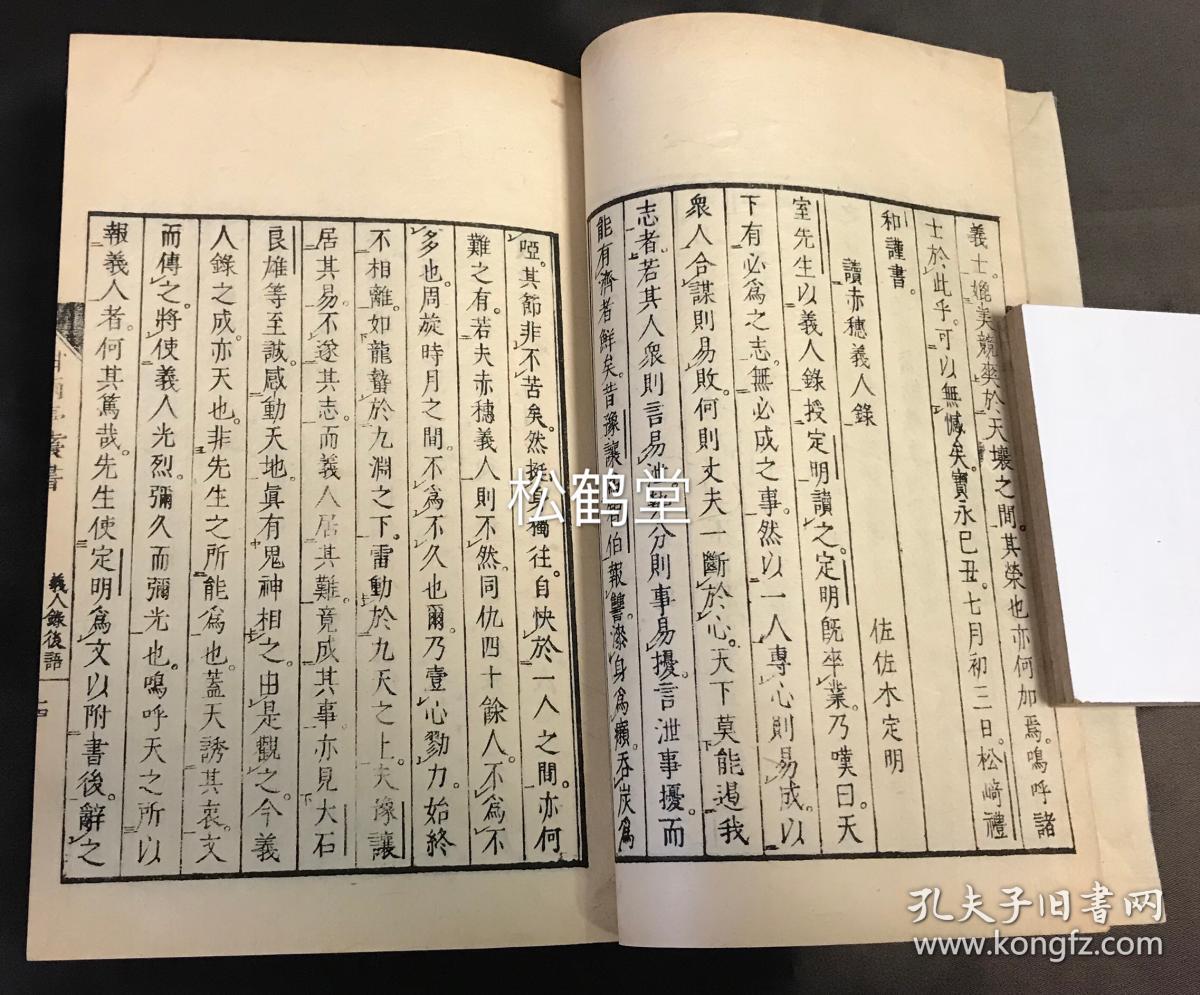 義士。媲美競爽於天壤之間。其榮也亦何加焉。嗚呼諸
士於此乎。可以無憾矣。寶永己丑。七月初三日。松崎禮
和謹書。
讀赤穗義人錄
佐佐木定明
室先生以義人錄授定明讀之。定明既卒業。乃嘆曰。天
下有必為之志。無必成之事。然以一人專心則易成。以
衆人合謀則易敗。何則丈夫一斷於心。天下莫能遏我
志者。若其人衆則言易泄。勢分則事易擾。言泄事擾。而
能有濟者鮮矣。昔豫讓為智伯報讐。漆身為癩。吞炭為
啞。其節非不苦矣。然挺身獨往。自快於一人之間。亦何
難之有。若夫赤穗義人則不然。同仇四十餘人。不為不
多也。周旋時月之間。不為不久也。爾乃壹心勠力。始終
不相離。如龍蟄於九淵之下。雷動於九天之上。夫豫讓
居其易。不遂其志。而義人居其難。竟成其事。亦見大石
良雄等至誠。感動天地。眞有鬼神相之。由是觀之。今義
人錄之成。亦天也。非先生之所能為也。蓋天誘其衷。文
而傳之。將使義人光烈。彌久而彌光也。嗚呼天之所以
報義人者。何其篤哉。先生使定明為文以附書後。辭之
叢書
義人錄後語
十四
松鹤堂
孔夫子旧书网
www.kongfz.com